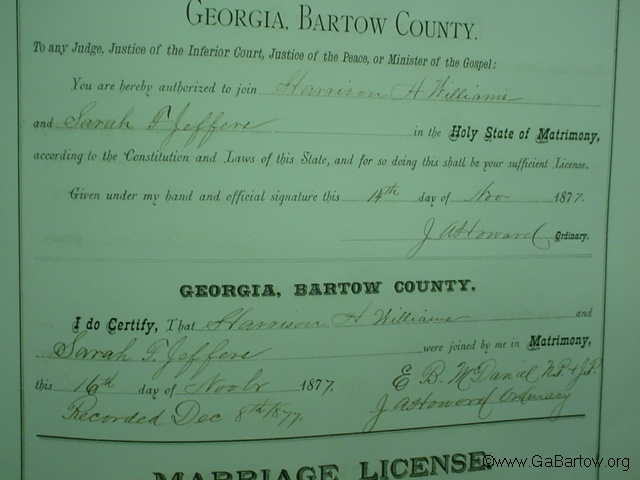 GEORGIA, BARTOW COUNTY.
To any Judge, Justice of the Inferior Court, Justice of the Peace, or Minister of the Gospel:
You are hereby authorized to join Harrison H Williams
and Sarah F Jeffers in the Holy State of Matrimony,
according to the Constitution and Laws of this State, and for so doing this shall be your sufficient License.
Given under my hand and official signature this 14th day of Nov 1877.
J A Howard Ordinary.
GEORGIA, BARTOW COUNTY.
I do Certify, That Harrison H Williams and
Sarah F. Jeffers were joined by me in Matrimony,
this 16th day of Novbr 1877. E B. McDaniel N.P. & J.P.
Recorded Dec 8th 1877. J A Howard Ordinary
MARRIAGE LICENSE.
©www.GaBartow.org